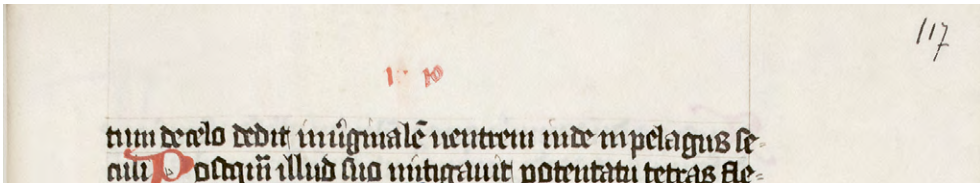 117
1 10
tum de celo dedit in uͥginalē uentrem inde in pelagus se-
culi Postqm̄ illud suo mitigauit potentatu tetras fle-